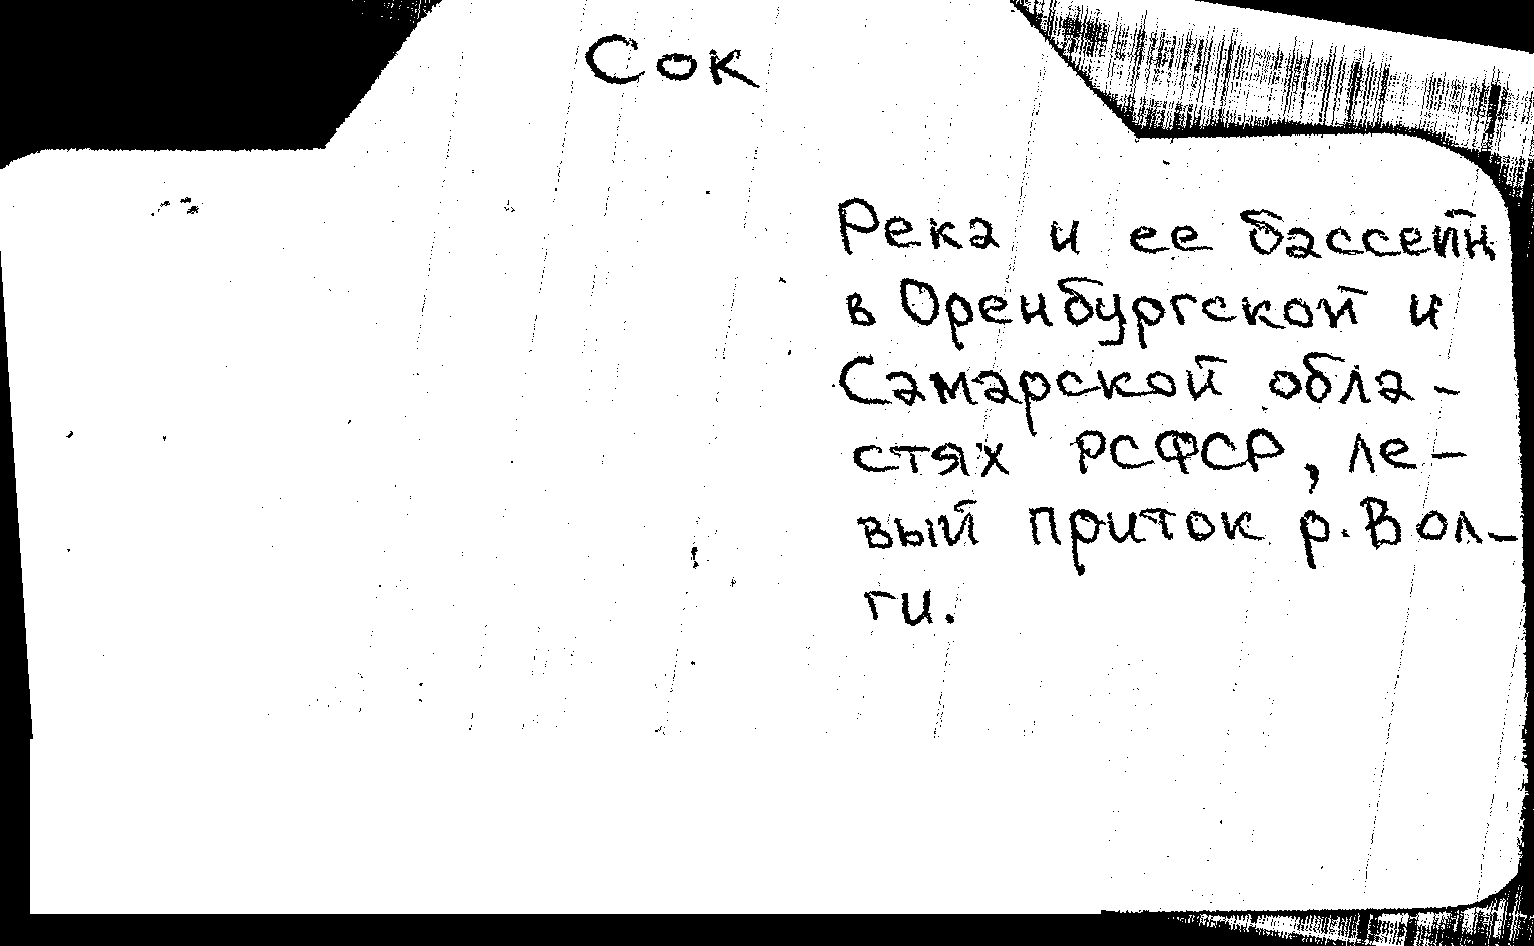 Сок
Река и ее бассейн
в Оренбургской и
Самарской обла-
стях РСФСР, ле-
вый приток р. Вол-
ги.